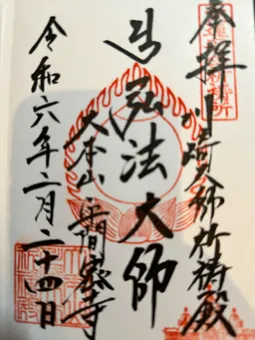 奉拝 川崎大師祈祷殿
弘法大師
大本山 平間密寺
令和六年二月二十四日